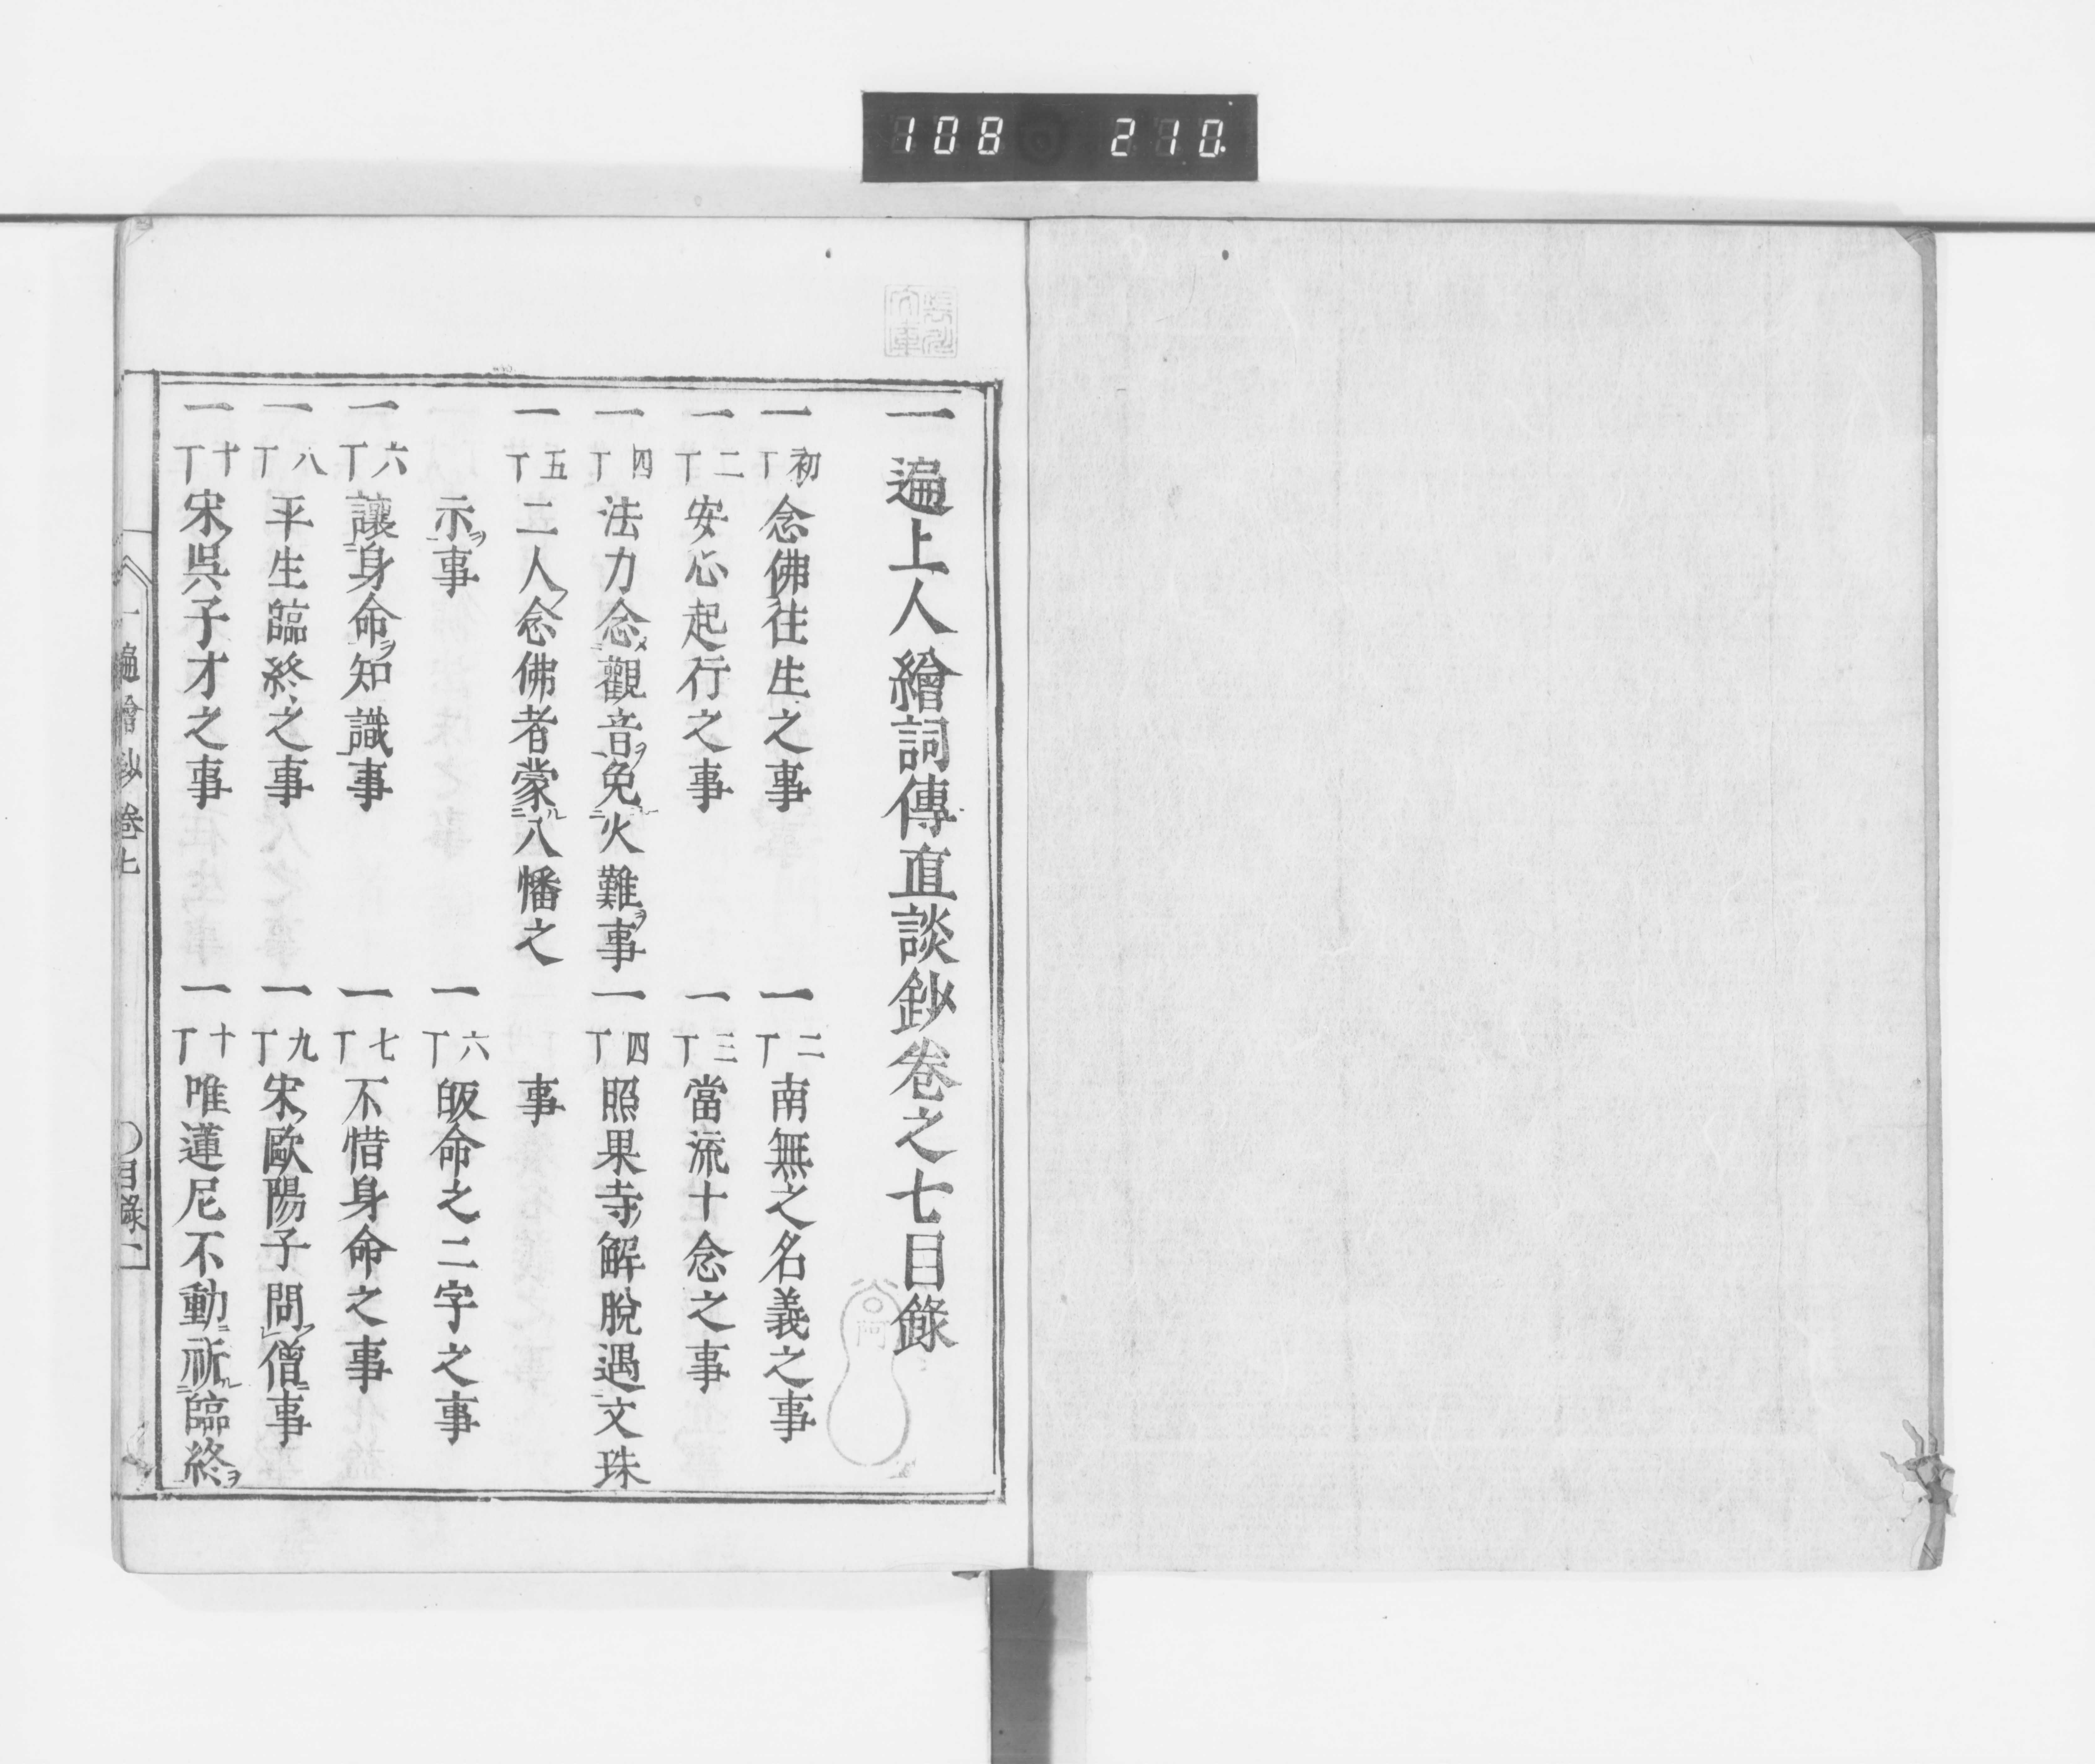 108 210
一遍上人繪詞傳直談鈔卷之七目錄
一 初丁 念佛往生之事 一 二丁 南無之名義之事
一 二丁 安心起行之事 一 三丁 當流十念之事
一 四丁 法力念觀音ヲ免火難ヲ事 一 四丁 照果寺解脫遇文珠
一 五丁 二人念佛者蒙八幡之 事
示ヲ事 一 六丁 皈命之二字之事
一 六丁 讓身命ヲ知識事 一 七丁 不惜身命之事
一 八丁 平生臨終之事 一 九丁 宋歐陽子問僧事
一 十丁 宋吳子才之事 一 十丁 唯蓮尼不動祈臨終ヲ
一遍繪鈔卷七 〇目錄一